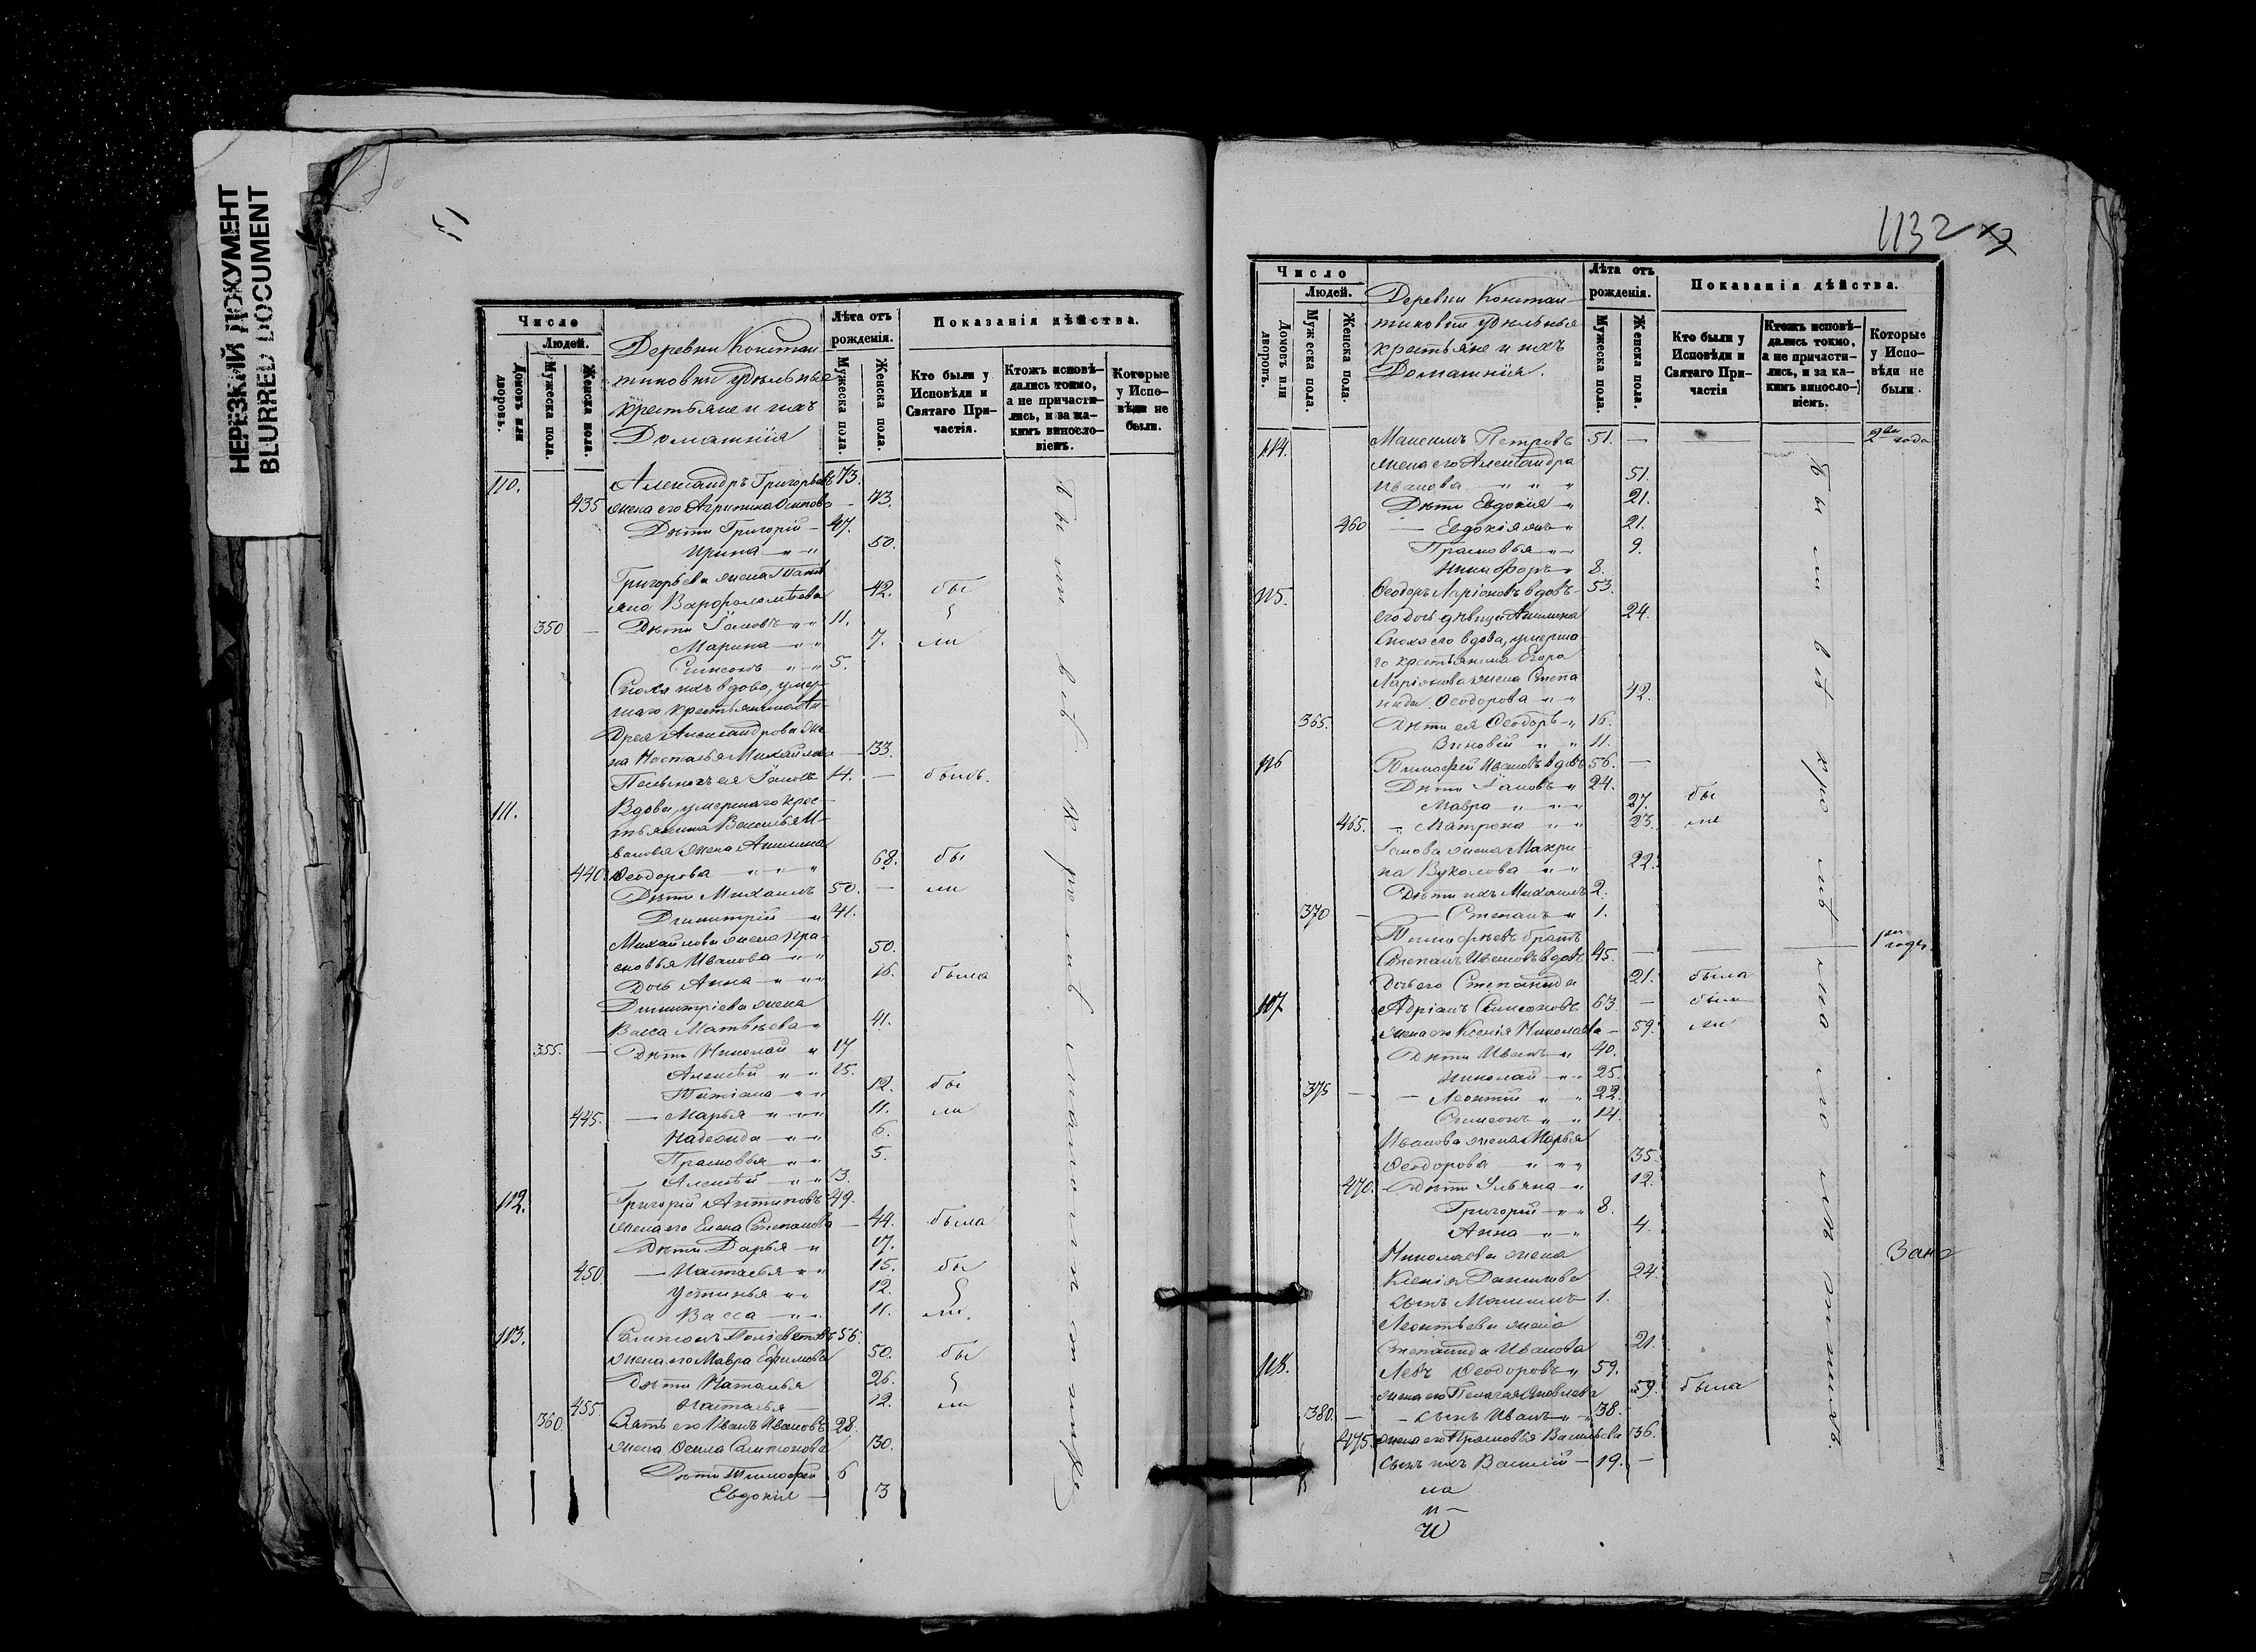 НЕРЕЗКИЙ ДОКУМЕНТ
BLURRED DOCUMENT
Число
Людей.
Домовъ или дворовъ.
Мужеска пола.
Женска пола.
Деревни Констан-
тиновки удѣльные
крестьяне и ихъ
Домашнія
Лѣта отъ рожденія.
Мужеска пола.
Женска пола.
Показанія дѣйства.
Кто были у Исповѣди и Святаго При-частія.
Ктожъ исповѣ-дались токмо, а не причасти-лись, и за ка-кимъ винословіемъ.
Которые у Испо-вѣди не были.
110. Александръ Григорьевъ 73.
435 жена его Агрипина Осипова - 73.
Дѣти Григорій - 47.
Ирина 50.
Григорьева жена Татi
яна Варфоломѣева 42. бы
350 — Дѣти Іаковъ 11.
Марина 7. ли
Симеонъ 5.
Сноха ихъ вдова, умер-
шаго крестьянина Ан-
дрея Александрова же
на Наталья Михайлова 33.
Пасынокъ ея Іаковъ 14. — былъ.
111. Вдова, умершаго крес-
тьянина Василья И-
ванова жена Акилина
440. Ѳеодорова 68. бы
Дѣти Михаилъ 50. — ли
Димитрій 41.
Михайлова жена Пра-
сковья Иванова 50.
Дочь Анна 16. была
Димитріева жена
Васса Матвѣева 41.
355. — Дѣти Николай 17.
Алексѣй 15.
Татіана 12. бы
445. — Марья 11. ли
Надежда 6.
Прасковья 5.
Алексѣй 3.
112. Григорій Антиповъ 49.
жена его Елена Степанова — 44. была
Дѣти Дарья 17.
450. — Настасья 15. бы
Устинья 12.
Васса 11. ли.
113. Сампсонъ Поліевктовъ 56.
жена его Мавра Ефимова 50. бы
Дѣти Наталья 26.
455. Настасья 12. ли
360. Зять его Иванъ Ивановъ 28.
жена Ѳекла Сампсонова 30.
Дѣти Тимофей 6
Евдокія 3
1132
Число
Людей.
Домовъ или дворовъ.
Мужеска пола.
Женска пола.
Деревни Констан-
тиновки удѣльныя
крестьяне и ихъ
Домашнія.
Лѣта отъ рожденія.
Мужеска пола.
Женска пола.
Показанія дѣйства.
Кто были у Исповѣди и Святаго При-частія
Ктожъ исповѣ-дались токмо, а не причасти-лись, и за ка-кимъ виносло-віемъ.
Которые у Испо-вѣди не были.
114. Максимъ Петровъ 51. — — 2ва года
жена его Александра
Иванова 51.
Дѣти Евдокія 21.
460 — Евдокія 21.
Прасковья 9.
Никифоръ 8.
115. Ѳеодоръ Ларіоновъ вдовъ 53.
его дочь дѣвица Акилина 24.
Сноха его вдова, умерша-
го крестьянина Егора
Ларіонова жена Степа
нида Ѳеодорова 42.
365. Дѣти ея Ѳеодоръ 16.
Зиновій 11.
116 Тимофей Ивановъ вдовъ 56. —
Дѣти Іаковъ 24.
Мавра 27. бы
465. — Матрона 23. ли
Іакова жена Макри-
на Вуколова 22.
Дѣти ихъ Михаилъ 2.
370 — — Степанъ 1.
Тимофѣевъ братъ
Степанъ Ивановъ вдовъ 45. — — 1 годъ
Дочь его Степанида 21. была
117 Адріанъ Симеоновъ 63 — бы
жена его Ксенія Николаева — 59. ли
Дѣти Иванъ 40.
Николай 25.
375 — — Леонтій 22.
Симеонъ 14.
Иванова жена Марья
Ѳеодорова 35.
470. Дѣти Ульяна 12.
Григорій 8.
Анна 4.
Николаева жена
Ксенія Данилова 24.
сынъ Максимъ 1.
Леонтьева жена
Степанида Иванова 21.
118. Левъ Ѳеодоровъ 59.
жена его Пелагея Яковлева 59. была
380. — — сынъ Иванъ 38.
475. жена его Прасковья Васильева 36.
Сынъ ихъ Василій — 19. —